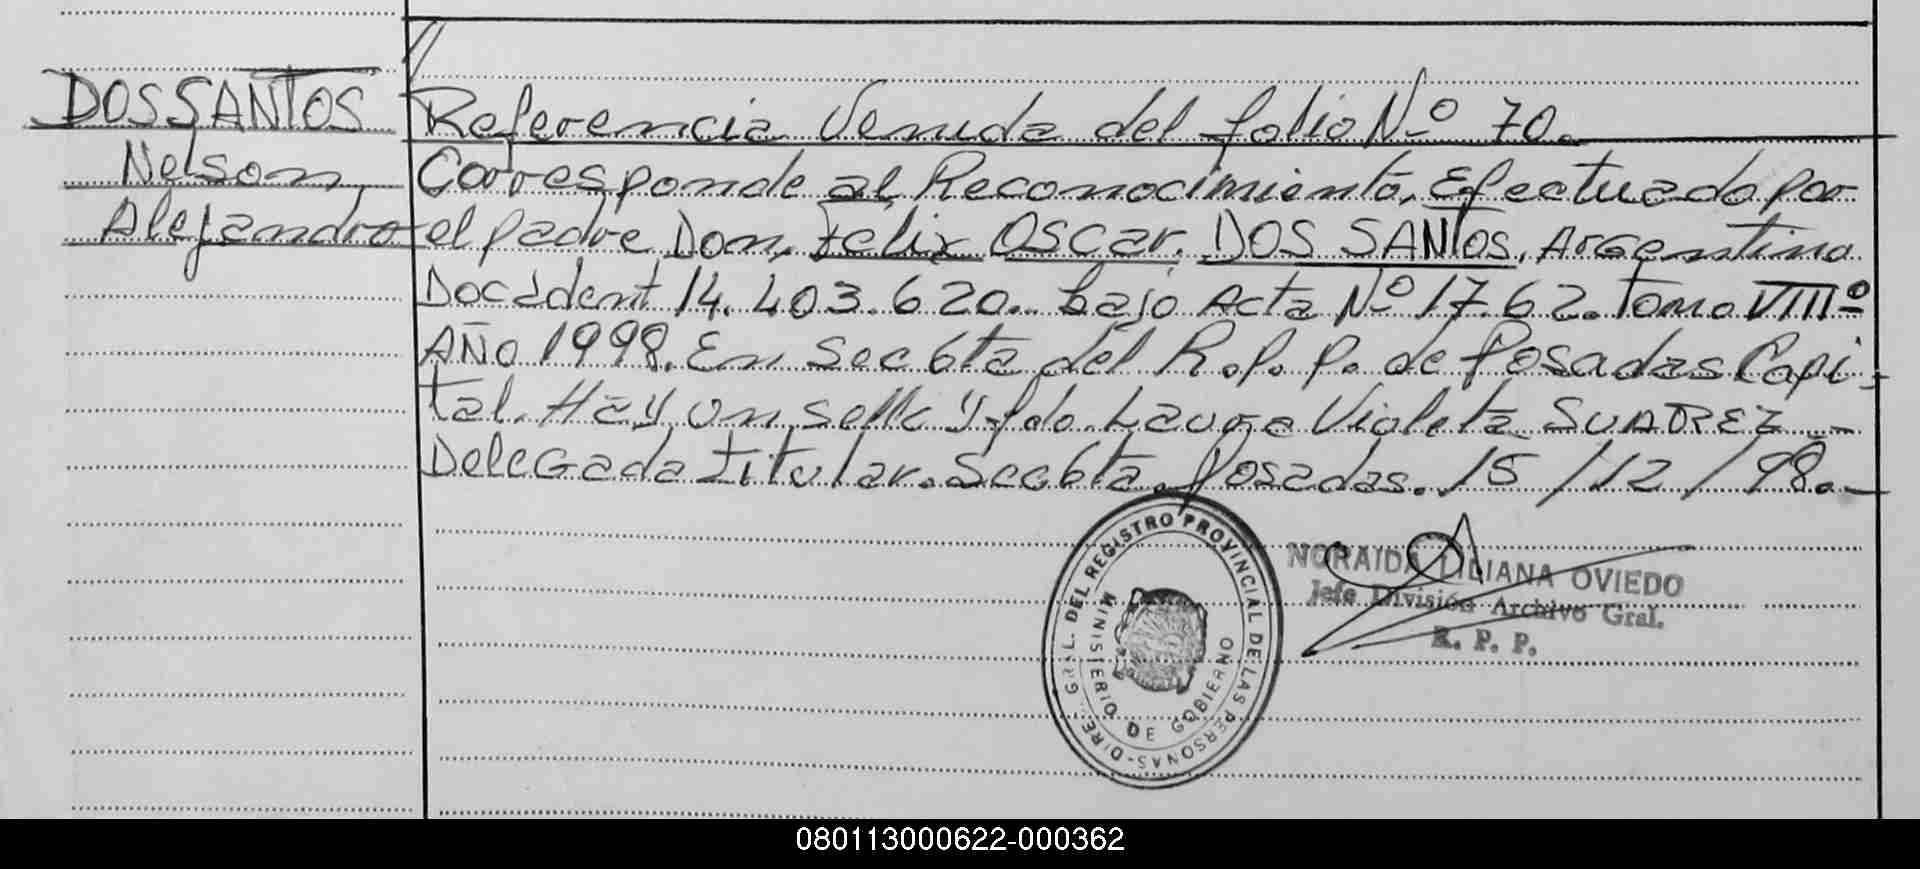 DOS SANTOS
Nelson,
Alejandro
Referencia Venida del folio Nº 70.
Corresponde al Reconocimiento, Efectuado por
el padre Don, Felix Oscar. DOS SANTOS, Argentino
Doc Ident 14.403.620.. bajo Acta Nº 1762. Tomo VIIIº
AÑO 1998. En Secc 6ta del R.P.P. de Posadas Capi-
tal. Hay un sello y fdo. Laura Violeta SUAREZ.-
Delegada titular. Secc 6ta. Posadas. 15/12/98.-
DIRE. GRAL. DEL REGISTRO PROVINCIAL DE LAS PERSONAS-
MINISTERIO DE GOBIERNO
NORAIDA LILIANA OVIEDO
Jefe División Archivo Gral.
R. P. P.
080113000622-000362